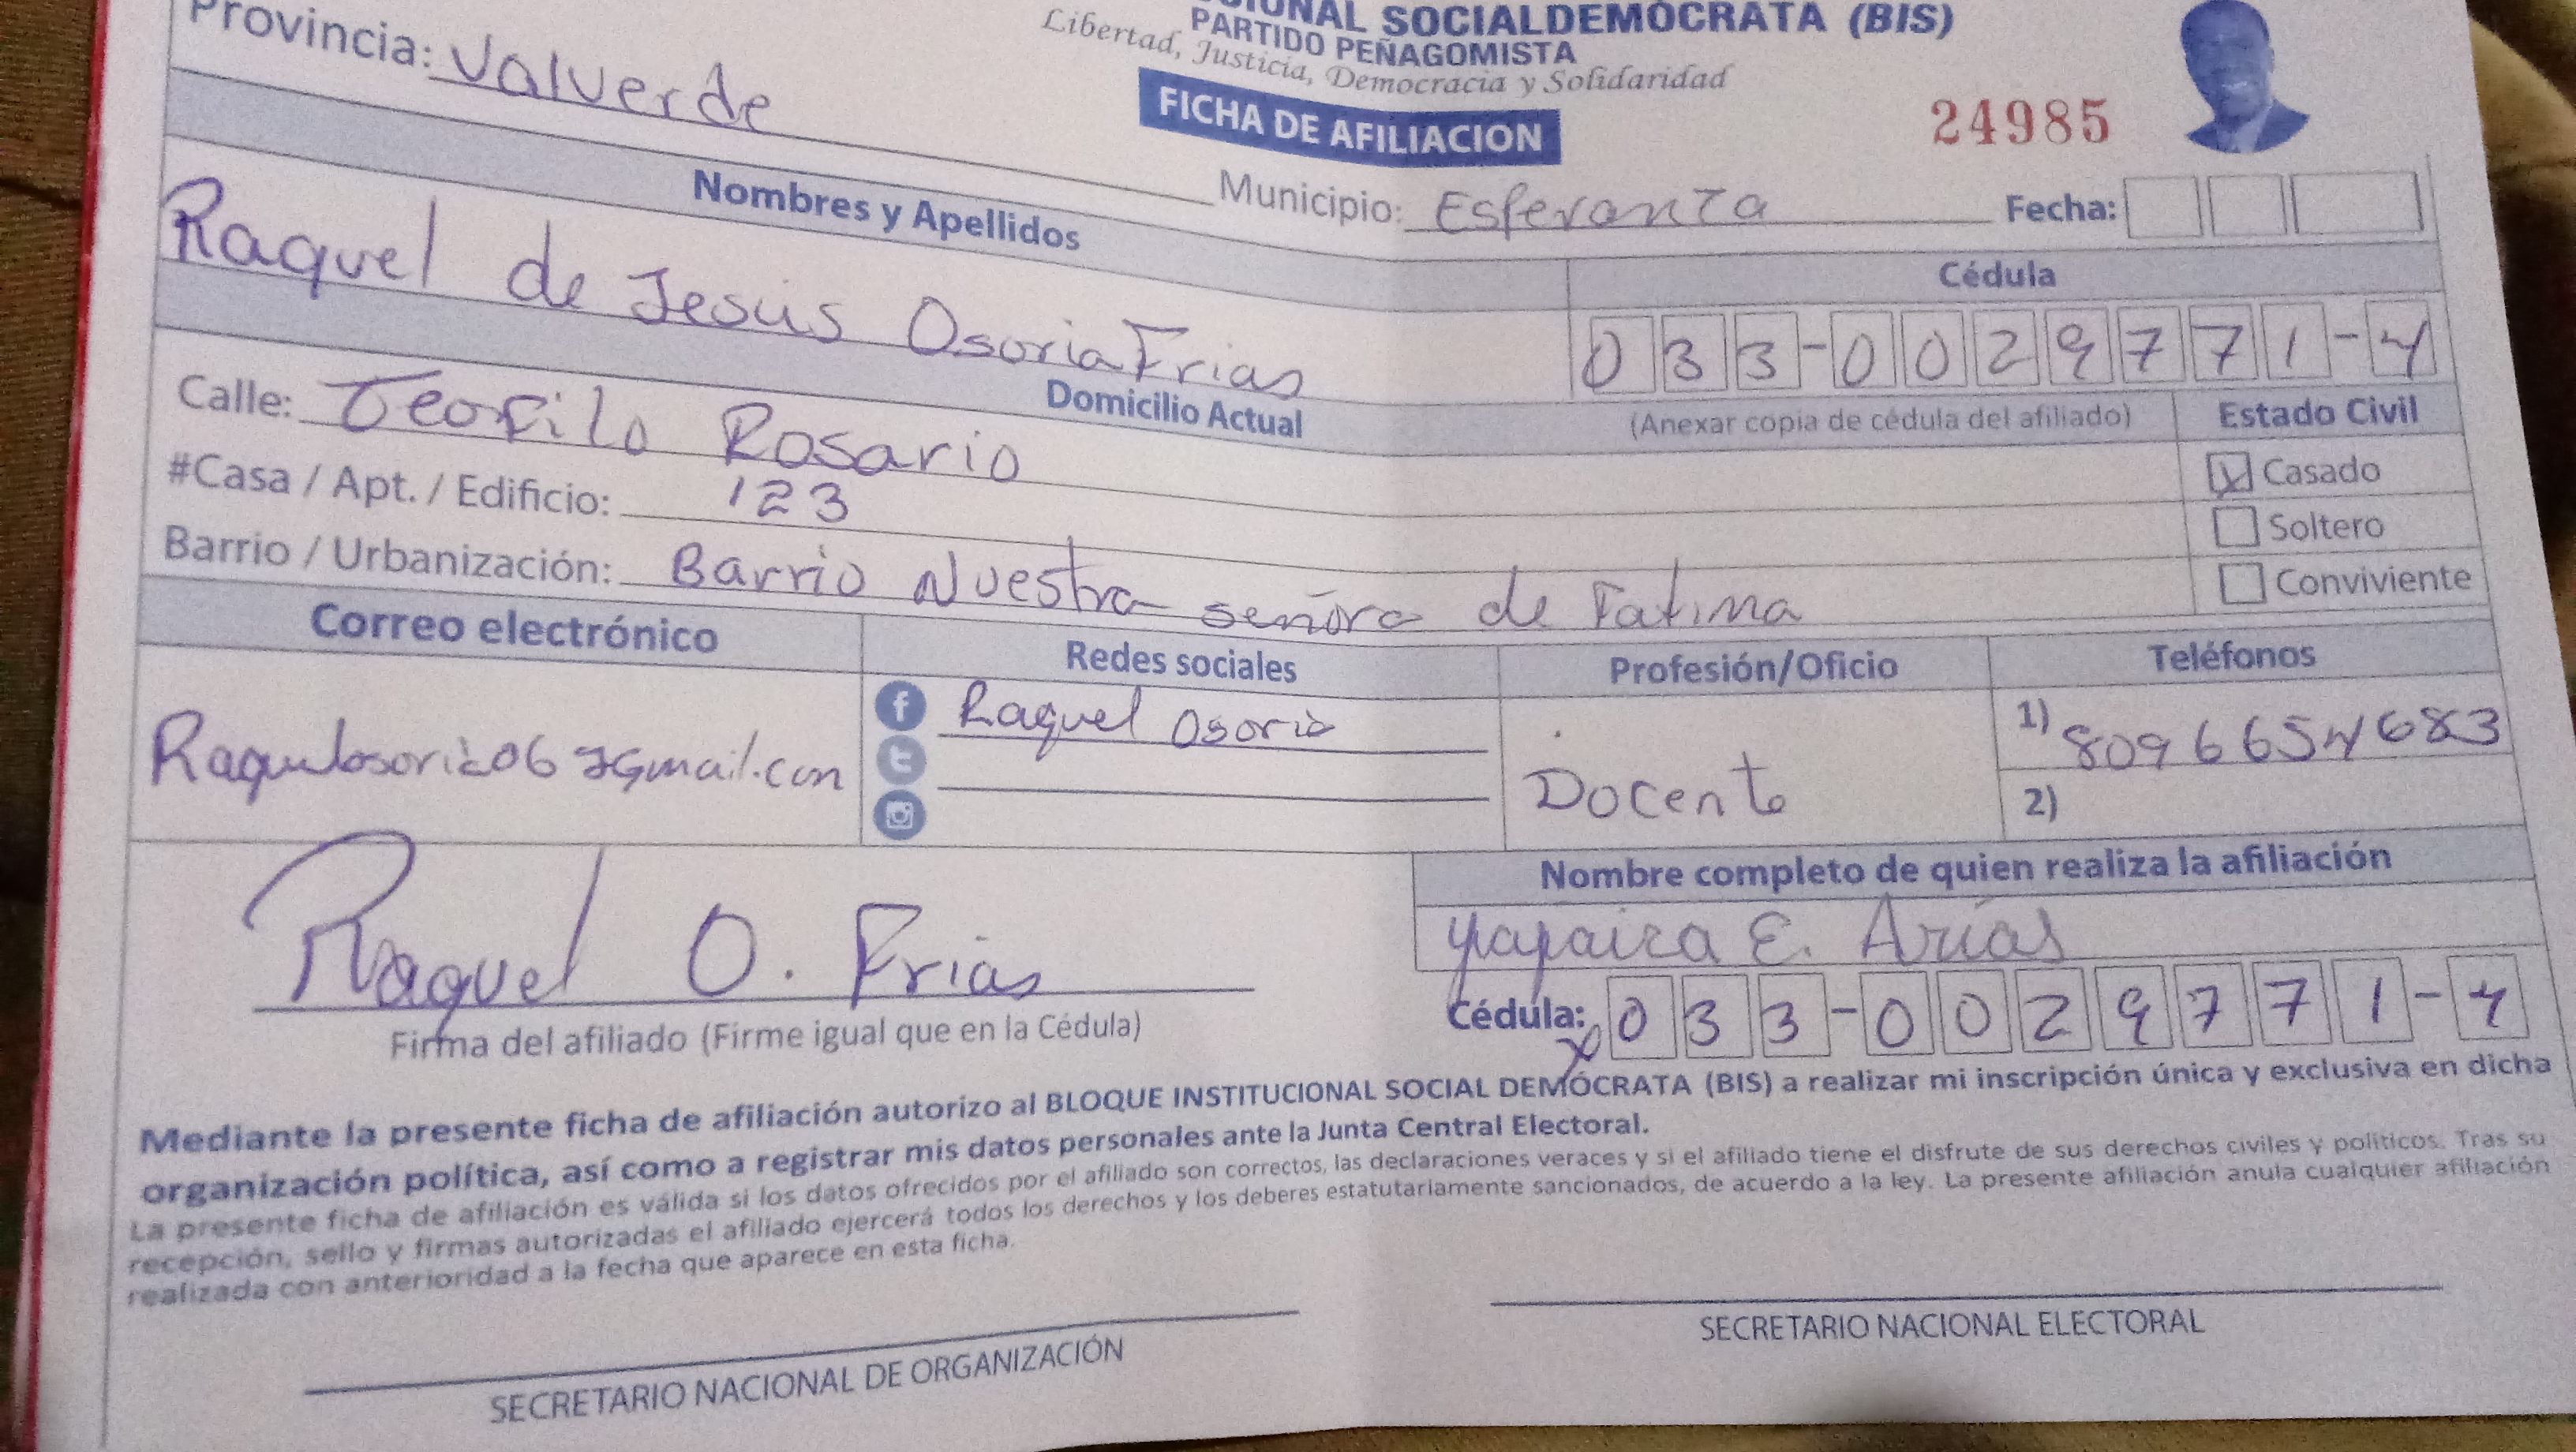 Provincia: Valverde
IONAL SOCIALDEMÓCRATA (BIS)
PARTIDO PEÑAGOMISTA
Libertad, Justicia, Democracia y Solidaridad
FICHA DE AFILIACION
24985
Municipio: Esperanza
Fecha:
Nombres y Apellidos
Cédula
Raquel de Jesús Osoria Frias
033-0029771-4
Domicilio Actual
(Anexar copia de cédula del afiliado)
Estado Civil
Calle: Teofilo Rosario
#Casa / Apt. / Edificio: 123
Barrio / Urbanización: Barrio Nuestra señora de Fatima
Casado
Soltero
Conviviente
Correo electrónico
Redes sociales
Profesión/Oficio
Teléfonos
Raquel Osoria
Docente
1) 8096654683
2)
Raquel O. Frias
Firma del afiliado (Firme igual que en la Cédula)
Nombre completo de quien realiza la afiliación
E. Arías
Cédula: 033-0029771-4
Mediante la presente ficha de afiliación autorizo al BLOQUE INSTITUCIONAL SOCIAL DEMÓCRATA (BIS) a realizar mi inscripción única y exclusiva en dicha
organización política, así como a registrar mis datos personales ante la Junta Central Electoral.
La presente ficha de afiliación es válida si los datos ofrecidos por el afiliado son correctos, las declaraciones veraces y si el afiliado tiene el disfrute de sus derechos civiles y políticos. Tras su
recepción, sello y firmas autorizadas el afiliado ejercerá todos los derechos y los deberes estatutariamente sancionados, de acuerdo a la ley. La presente afiliación anula cualquier afiliación
realizada con anterioridad a la fecha que aparece en esta ficha.
SECRETARIO NACIONAL DE ORGANIZACIÓN
SECRETARIO NACIONAL ELECTORAL